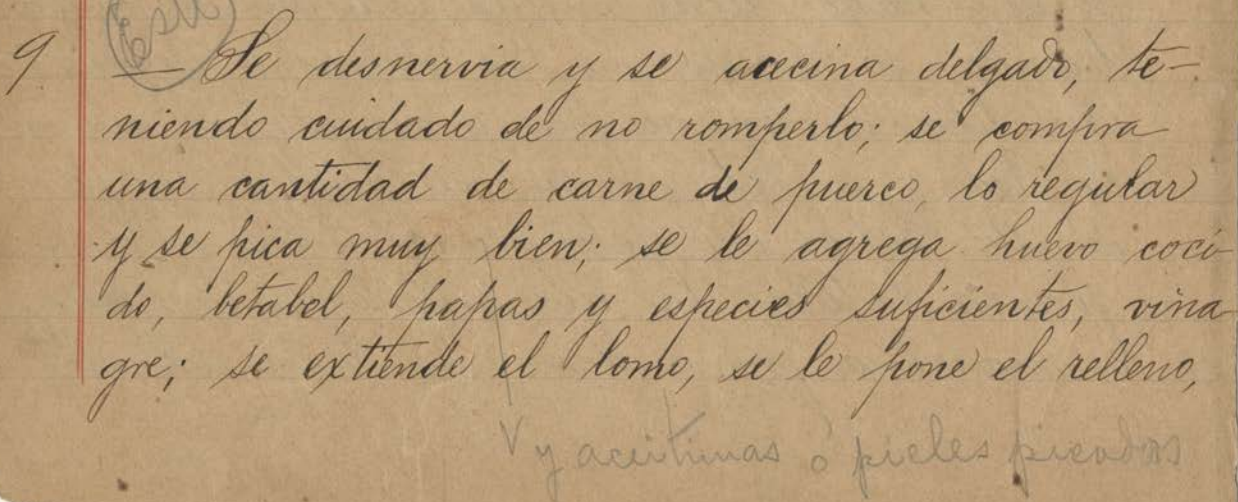 Esta
9 — Se desnervia y se acecina delgado, te-
niendo cuidado de no romperlo; se compra
una cantidad de carne de puerco, lo regular
y se pica muy bien; se le agrega huevo coci-
do, betabel, papas y especies suficientes, vina-
gre; se extiende el lomo, se le pone el relleno,
y aceitunas ó picles picados